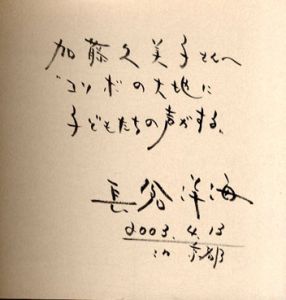 加藤久美子さんへ
"コソボの大地に
子どもたちの声がする。
長谷洋海
2003. 4. 13
in 京都